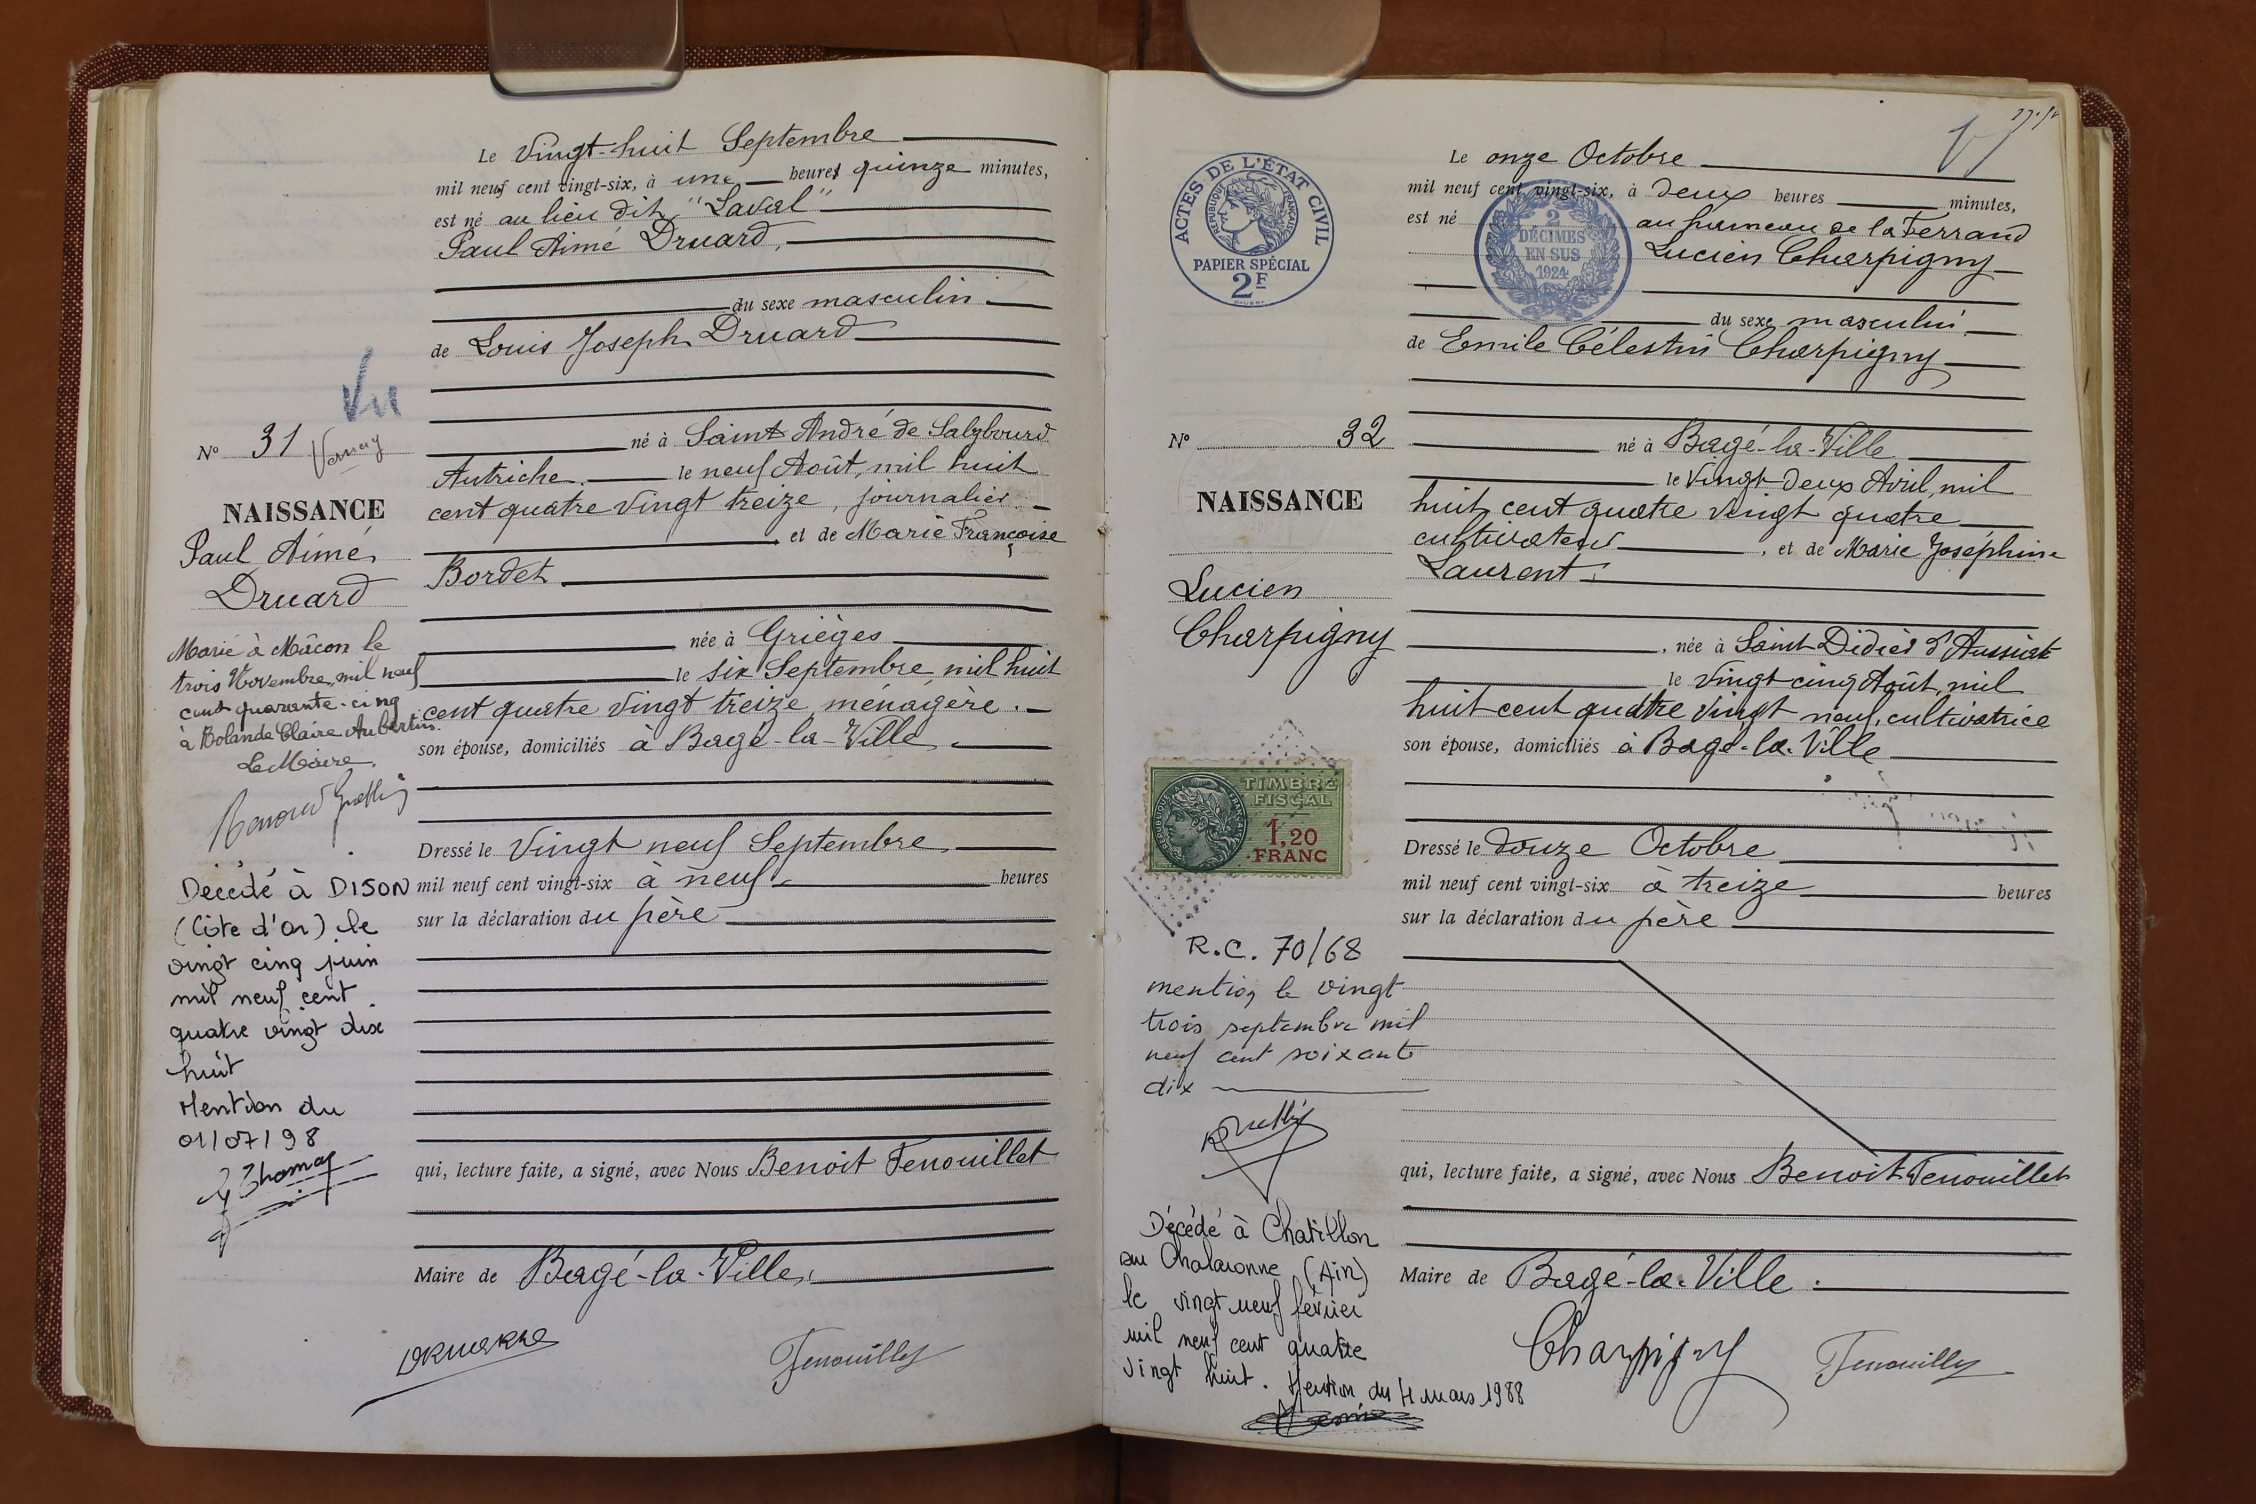 Le Vingt-huit Septembre
mil neuf cent vingt-six, à une heures quinze minutes,
est né au lieu dit "Laval"
Paul Aimé Druard,
du sexe masculin
de Louis Joseph Druard
né à Saint André de Salzbourd
Autriche. le neuf Août, mil huit
cent quatre vingt treize, journalier
et de Marie Françoise
Bordet
née à Grièges
le six Septembre mil huit
cent quatre vingt treize, ménagère.
son épouse, domiciliés à Bagé-la-Ville
Dressé le Vingt neuf Septembre
mil neuf cent vingt-six à neuf heures
sur la déclaration du père
qui, lecture faite, a signé, avec Nous Benoit Fenouillet
Maire de Bagé-la-Ville.
Fenouillet
Vu
No 31
NAISSANCE
Paul Aimé
Druard
Marié à Mâcon le
trois Novembre, mil neuf
cent quarante-cinq
à Rolande Claire Aubertin.
Le Maire.
Décédé à DISON
(Côte d'Or) le
vingt cinq juin
mil neuf cent
quatre vingt dix
huit
Mention du
01/07/98
Thomas
Le onze Octobre
mil neuf cent vingt-six, à deux heures minutes,
est né au hameau de la Ferrand
Lucien Charpigny
du sexe masculin
de Emile Célestin Charpigny
né à Bagé-la-Ville
le Vingt-deux Avril, mil
huit cent quatre vingt quatre
cultivateur, et de Marie Joséphine
Laurent
, née à Saint-Didier d'Aussiat
le vingt cinq Août, mil
huit cent quatre vingt neuf, cultivatrice
son épouse, domiciliés à Bagé-la-Ville
Dressé le douze Octobre
mil neuf cent vingt-six à treize heures
sur la déclaration du père
qui, lecture faite, a signé, avec Nous Benoit Fenouillet
Maire de Bagé-la-Ville.
Charpigny
Fenouillet
ACTES DE L'ÉTAT CIVIL
RÉPUBLIQUE FRANÇAISE
PAPIER SPÉCIAL
2F
2
DÉCIMES
EN SUS
1924
No 32
NAISSANCE
Lucien
Charpigny
TIMBRE
FISCAL
1,20
FRANC
R.C. 70/68
mention le vingt
trois septembre mil
neuf cent soixante
dix
Décédé à Chatillon
sur Chalaronne (Ain)
le vingt neuf février
mil neuf cent quatre
vingt huit. Mention du 4 mars 1988